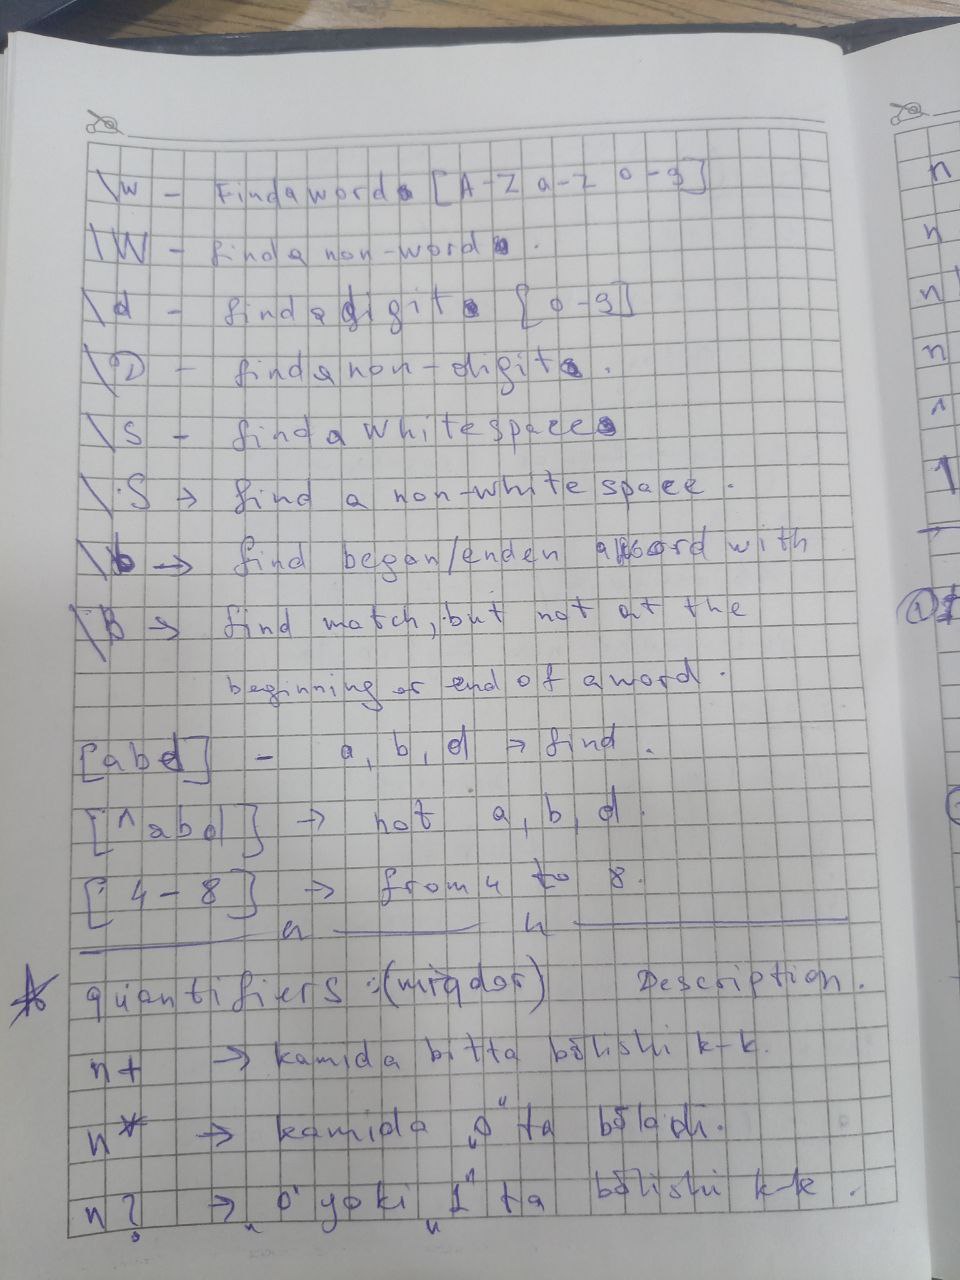 \w - Find a word [A-Z a-z 0-9]
\W - find a non-word.
\d - find a digit [0-9]
\D - find a non-digit.
\s - find a whitespace
\S → find a non-white space.
\b → find began/enden a word with
\B → find match, but not at the
beginning or end of a word.
[abd] - a, b, d → find.
[^abd] → not a, b, d.
[4-8] → from 4 to 8.
quantifiers :(miqdor) Description.
n+ → kamida bitta bõlishi k-k.
n* → kamida „0" ta bõladi.
n? → „0" yoki „1" ta bõlishi k-k.
n
n
n
n